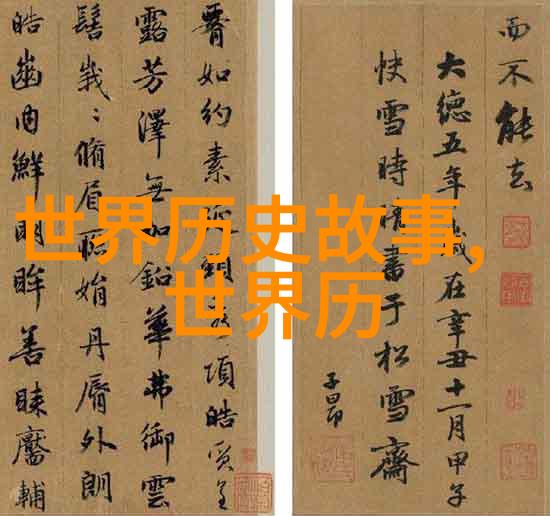 世界历史故事,
世界历
而不能去
大德五年歲在辛丑十一月甲子
快雪時清書于松雪齋
子昂
如約素延頸項皓質呈
露芳澤無加鉛華弗御雲
髻峩〻脩眉聯娟丹脣外朗
皓齒內鮮明眸善睞靨輔